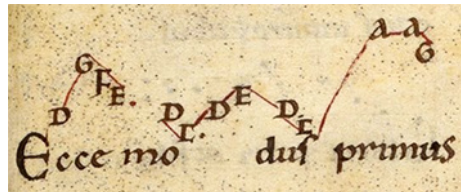 D G F E. D C. D E D E a a G
Ecce mo dus primus